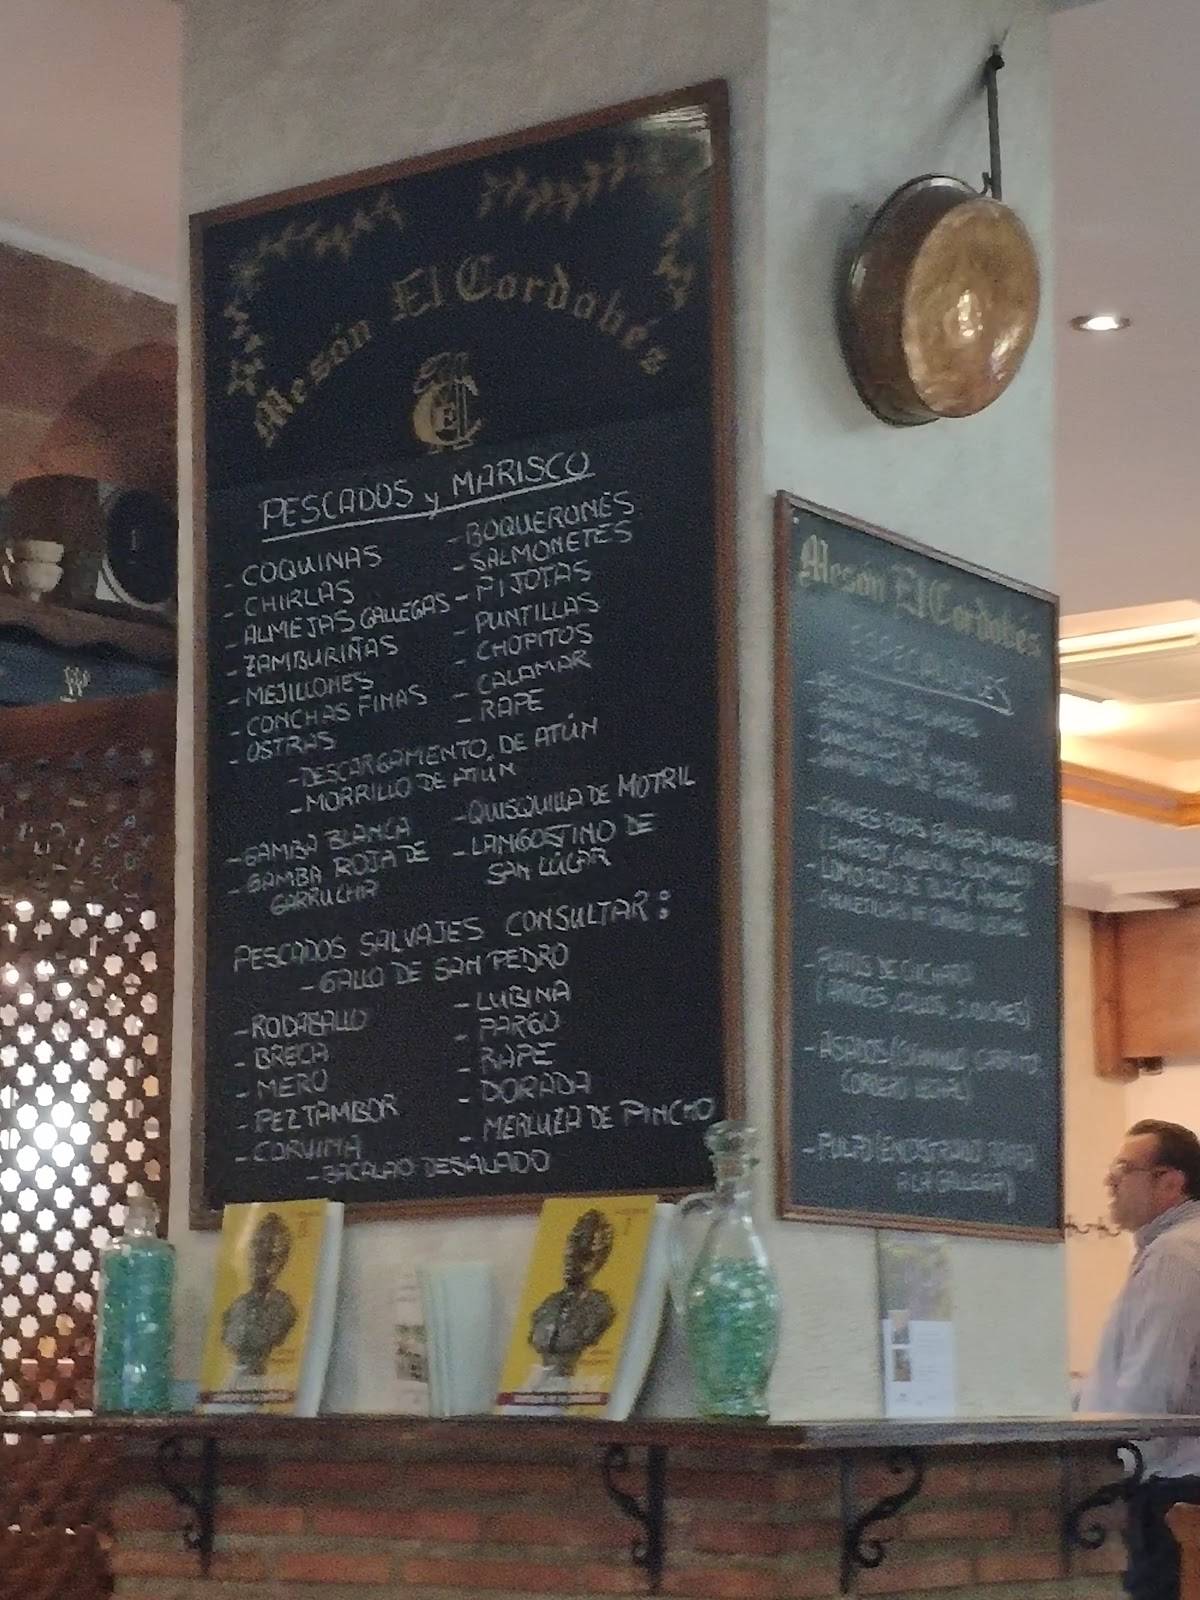 Mesón El Cordobés
PESCADOS y MARISCO
- COQUINAS
- CHIRLAS
- ALMEJAS GALLEGAS
- ZAMBURIÑAS
- MEJILLONES
- CONCHAS FINAS
- OSTRAS
- BOQUERONES
- SALMONETES
- PIJOTAS
- PUNTILLAS
- CHOPITOS
- CALAMAR
- RAPE
- DESCARGAMENTO DE ATÚN
- MORRILLO DE ATÚN
- GAMBA BLANCA
- GAMBA ROJA DE
GARRUCHA
- QUISQUILLA DE MOTRIL
- LANGOSTINO DE
SAN LÚCAR
PESCADOS SALVAJES CONSULTAR:
- GALLO DE SAN PEDRO
- RODABALLO
- BRECA
- MERO
- PEZ TAMBOR
- CORVINA
- LUBINA
- PARGO
- RAPE
- DORADA
- MERLUZA DE PINCHO
- BACALAO DESALADO
Mesón El Cordobés
ESPECIALIDADES
- LOMO ALTO DE BLACK ANGUS
- PLATOS DE CUCHARA
- ASADOS
CORDERO LECHAL)
- PULPO
A LA GALLEGA)